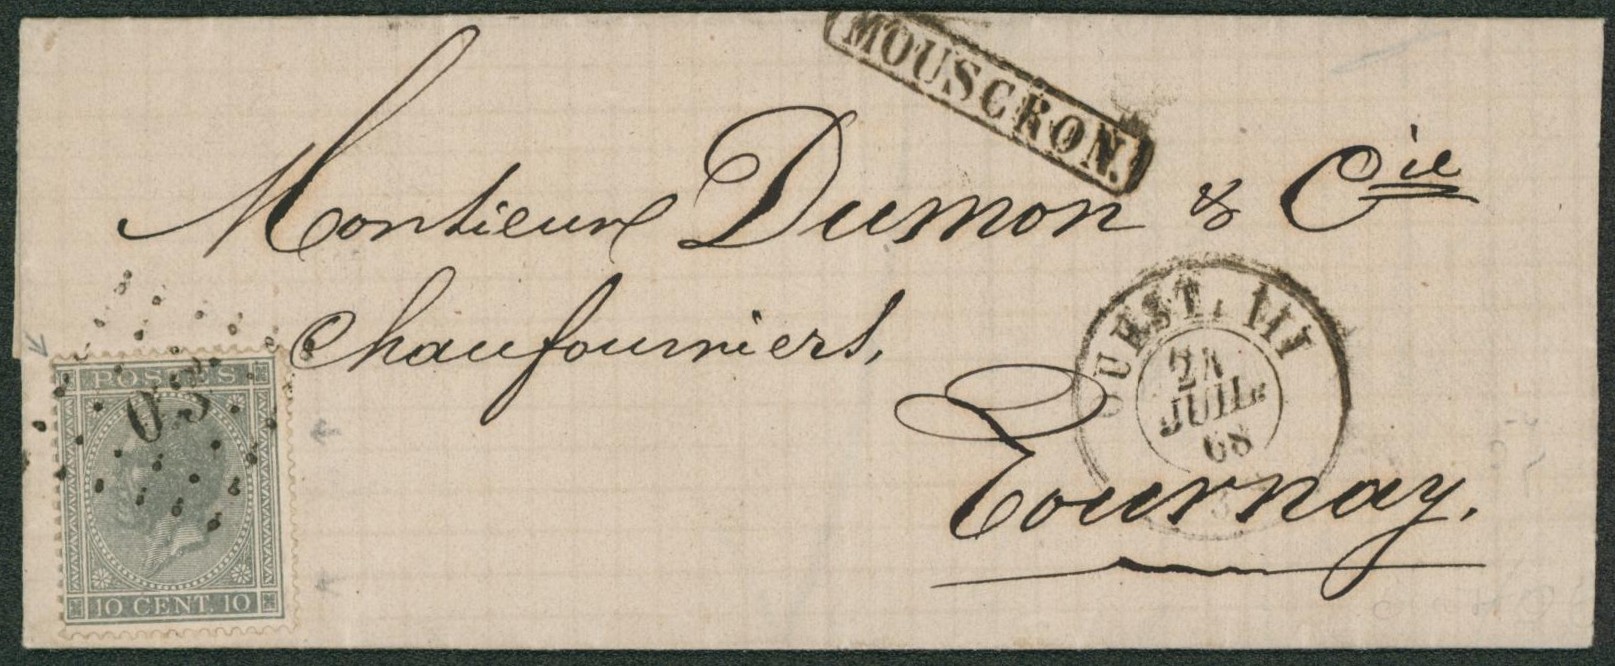 MOUSCRON.
Monsieur Dumon & Cie
Chaufourniers,
Tournay.
OUEST. III
24
JUIL.
68
POSTES
10 CENT. 10